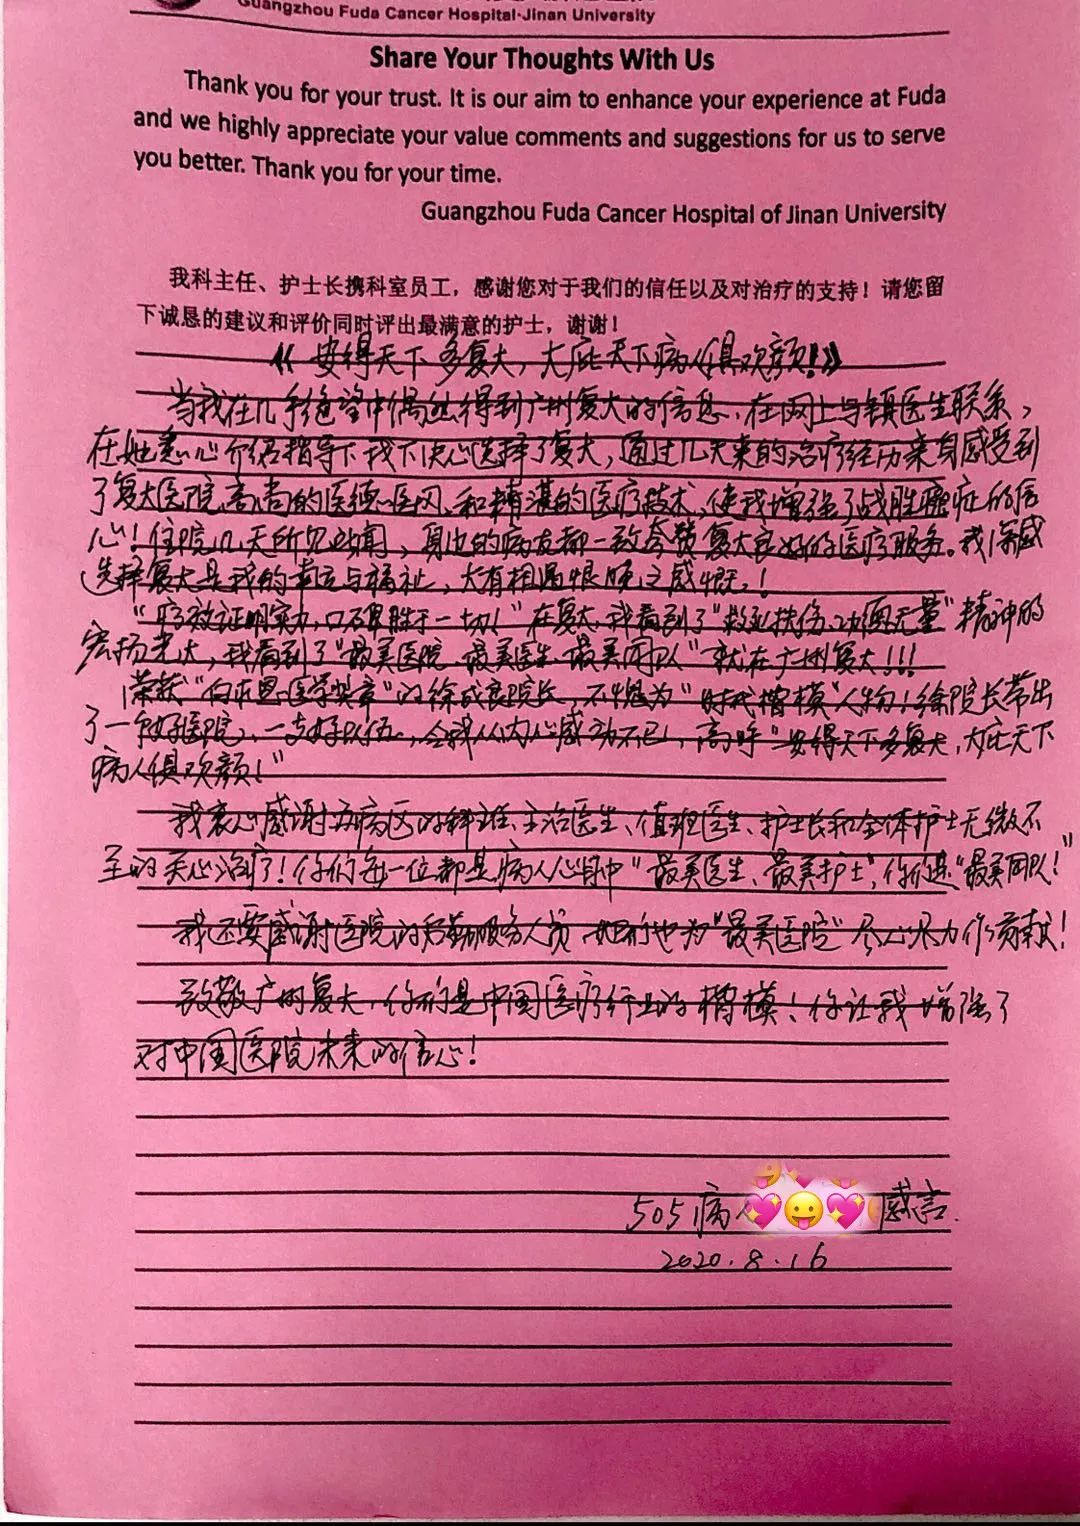 Guangzhou Fuda Cancer Hospital·Jinan University
Share Your Thoughts With Us
Thank you for your trust. It is our aim to enhance your experience at Fuda
and we highly appreciate your value comments and suggestions for us to serve
you better. Thank you for your time.
Guangzhou Fuda Cancer Hospital of Jinan University
我科主任、护士长携科室员工，感谢您对于我们的信任以及对治疗的支持！请您留
下诚恳的建议和评价同时评出最满意的护士，谢谢！
《安得天下多复大，大庇天下病人俱欢颜！》
当我在几乎绝望中偶然得到广州复大的信息，在网上与镇医生联系，
在她悉心介绍指导下我下决心选择了复大，通过几天来的治疗经历亲身感受到
了复大医院高尚的医德医风和精湛的医疗技术，使我增强了战胜癌症的信
心！住院几天所见所闻，身边的病友都一致夸赞复大良好的医疗服务。我深感
选择复大是我的幸运与福祉，大有相遇恨晚之感慨！
“疗效证明实力，口碑胜于一切！”在复大，我看到了“救死扶伤、功德无量”精神的
宏扬光大，我看到了“最美医院、最美医生、最美团队”就在广州复大！！！
荣获“白求恩医学奖章”的徐成良院长，不愧为“时代楷模”人物！徐院长带出
了一个好医院，一支好队伍，令我从内心感动不已，高呼“安得天下多复大，大庇天下
病人俱欢颜！”
我衷心感谢五病区的科主任、主治医生、值班医生、护士长和全体护士无微不
至的关心治疗！你们每一位都是病人心目中“最美医生、最美护士”，你们是“最美团队！”
我还要感谢医院的后勤服务人员，她们也为“最美医院”尽心尽力作贡献！
致敬广州复大，你们是中国医疗行业的楷模！你让我增强了
对中国医院未来的信心！
505病 感言
2020.8.16